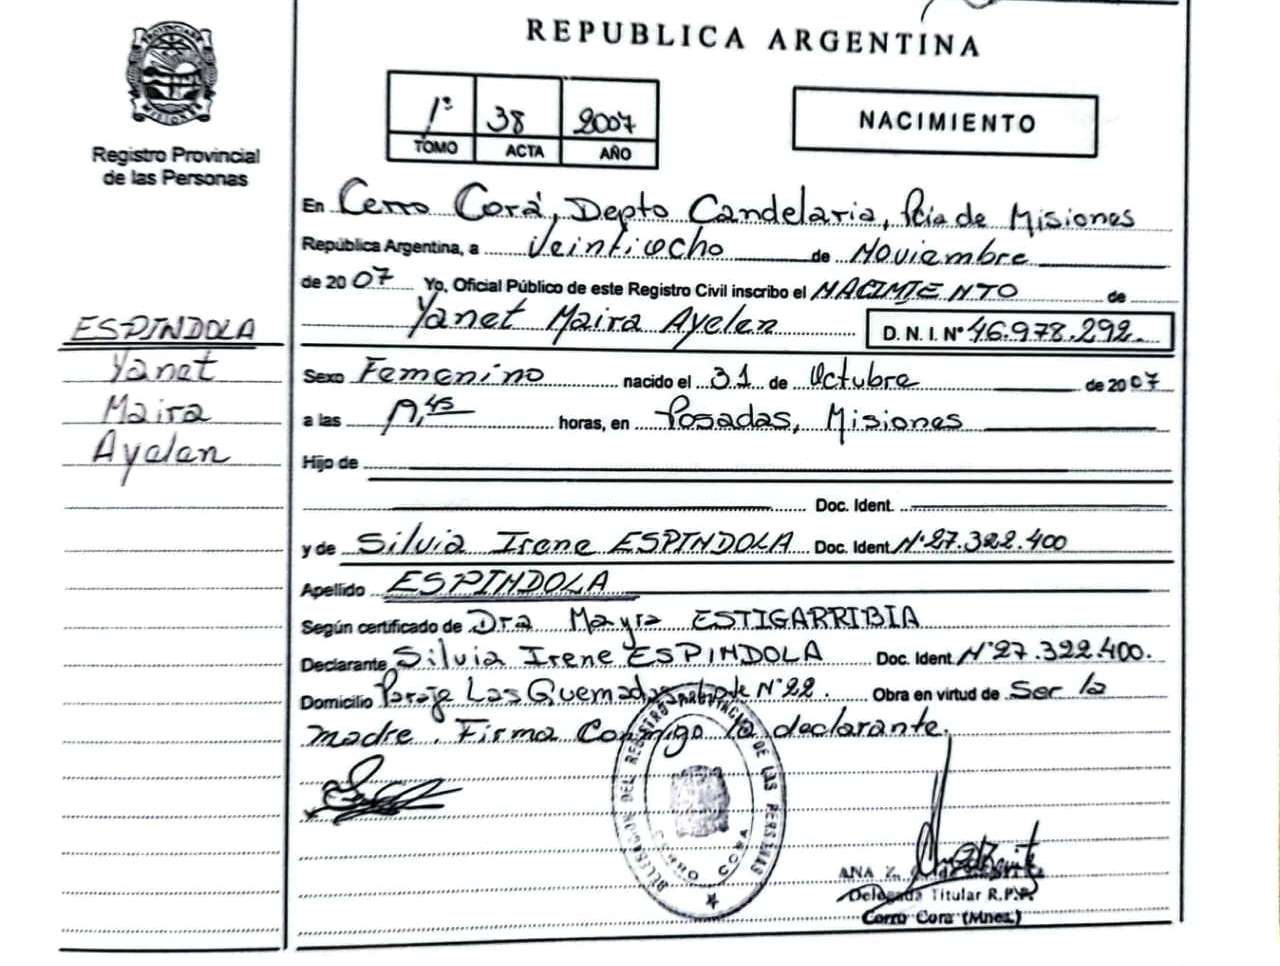 REPUBLICA ARGENTINA
PROVINCIA DE MISIONES
Registro Provincial
de las Personas
1º 38 2007
TOMO ACTA AÑO
NACIMIENTO
En Cerro Corá, Depto Candelaria, Pcia de Misiones
República Argentina, a Veintiocho de Noviembre
de 2007 Yo, Oficial Público de este Registro Civil inscribo el NACIMIENTO de
Yanet Maira Ayelen D. N. I. Nº 46.978.292.
ESPINDOLA
Yanet
Maira
Ayelen
Sexo Femenino nacido el 31 de Octubre de 2007
a las horas, en Posadas, Misiones
Hijo de
Doc. Ident.
y de Silvia Irene ESPINDOLA Doc. Ident. Nº 27.322.400
Apellido ESPINDOLA
Según certificado de Dra Mayra ESTIGARRIBIA
Declarante Silvia Irene ESPINDOLA Doc. Ident. Nº 27.322.400.
Domicilio Paraje Las Quemadas Nº 22. Obra en virtud de Ser la
madre. Firma Conmigo la declarante.
DELEGACION DEL REGISTRO PROVINCIAL DE LAS PERSONAS
CERRO CORA
ANA Z.
Delegada Titular R.P.P.
Cerro Cora (Mnes.)